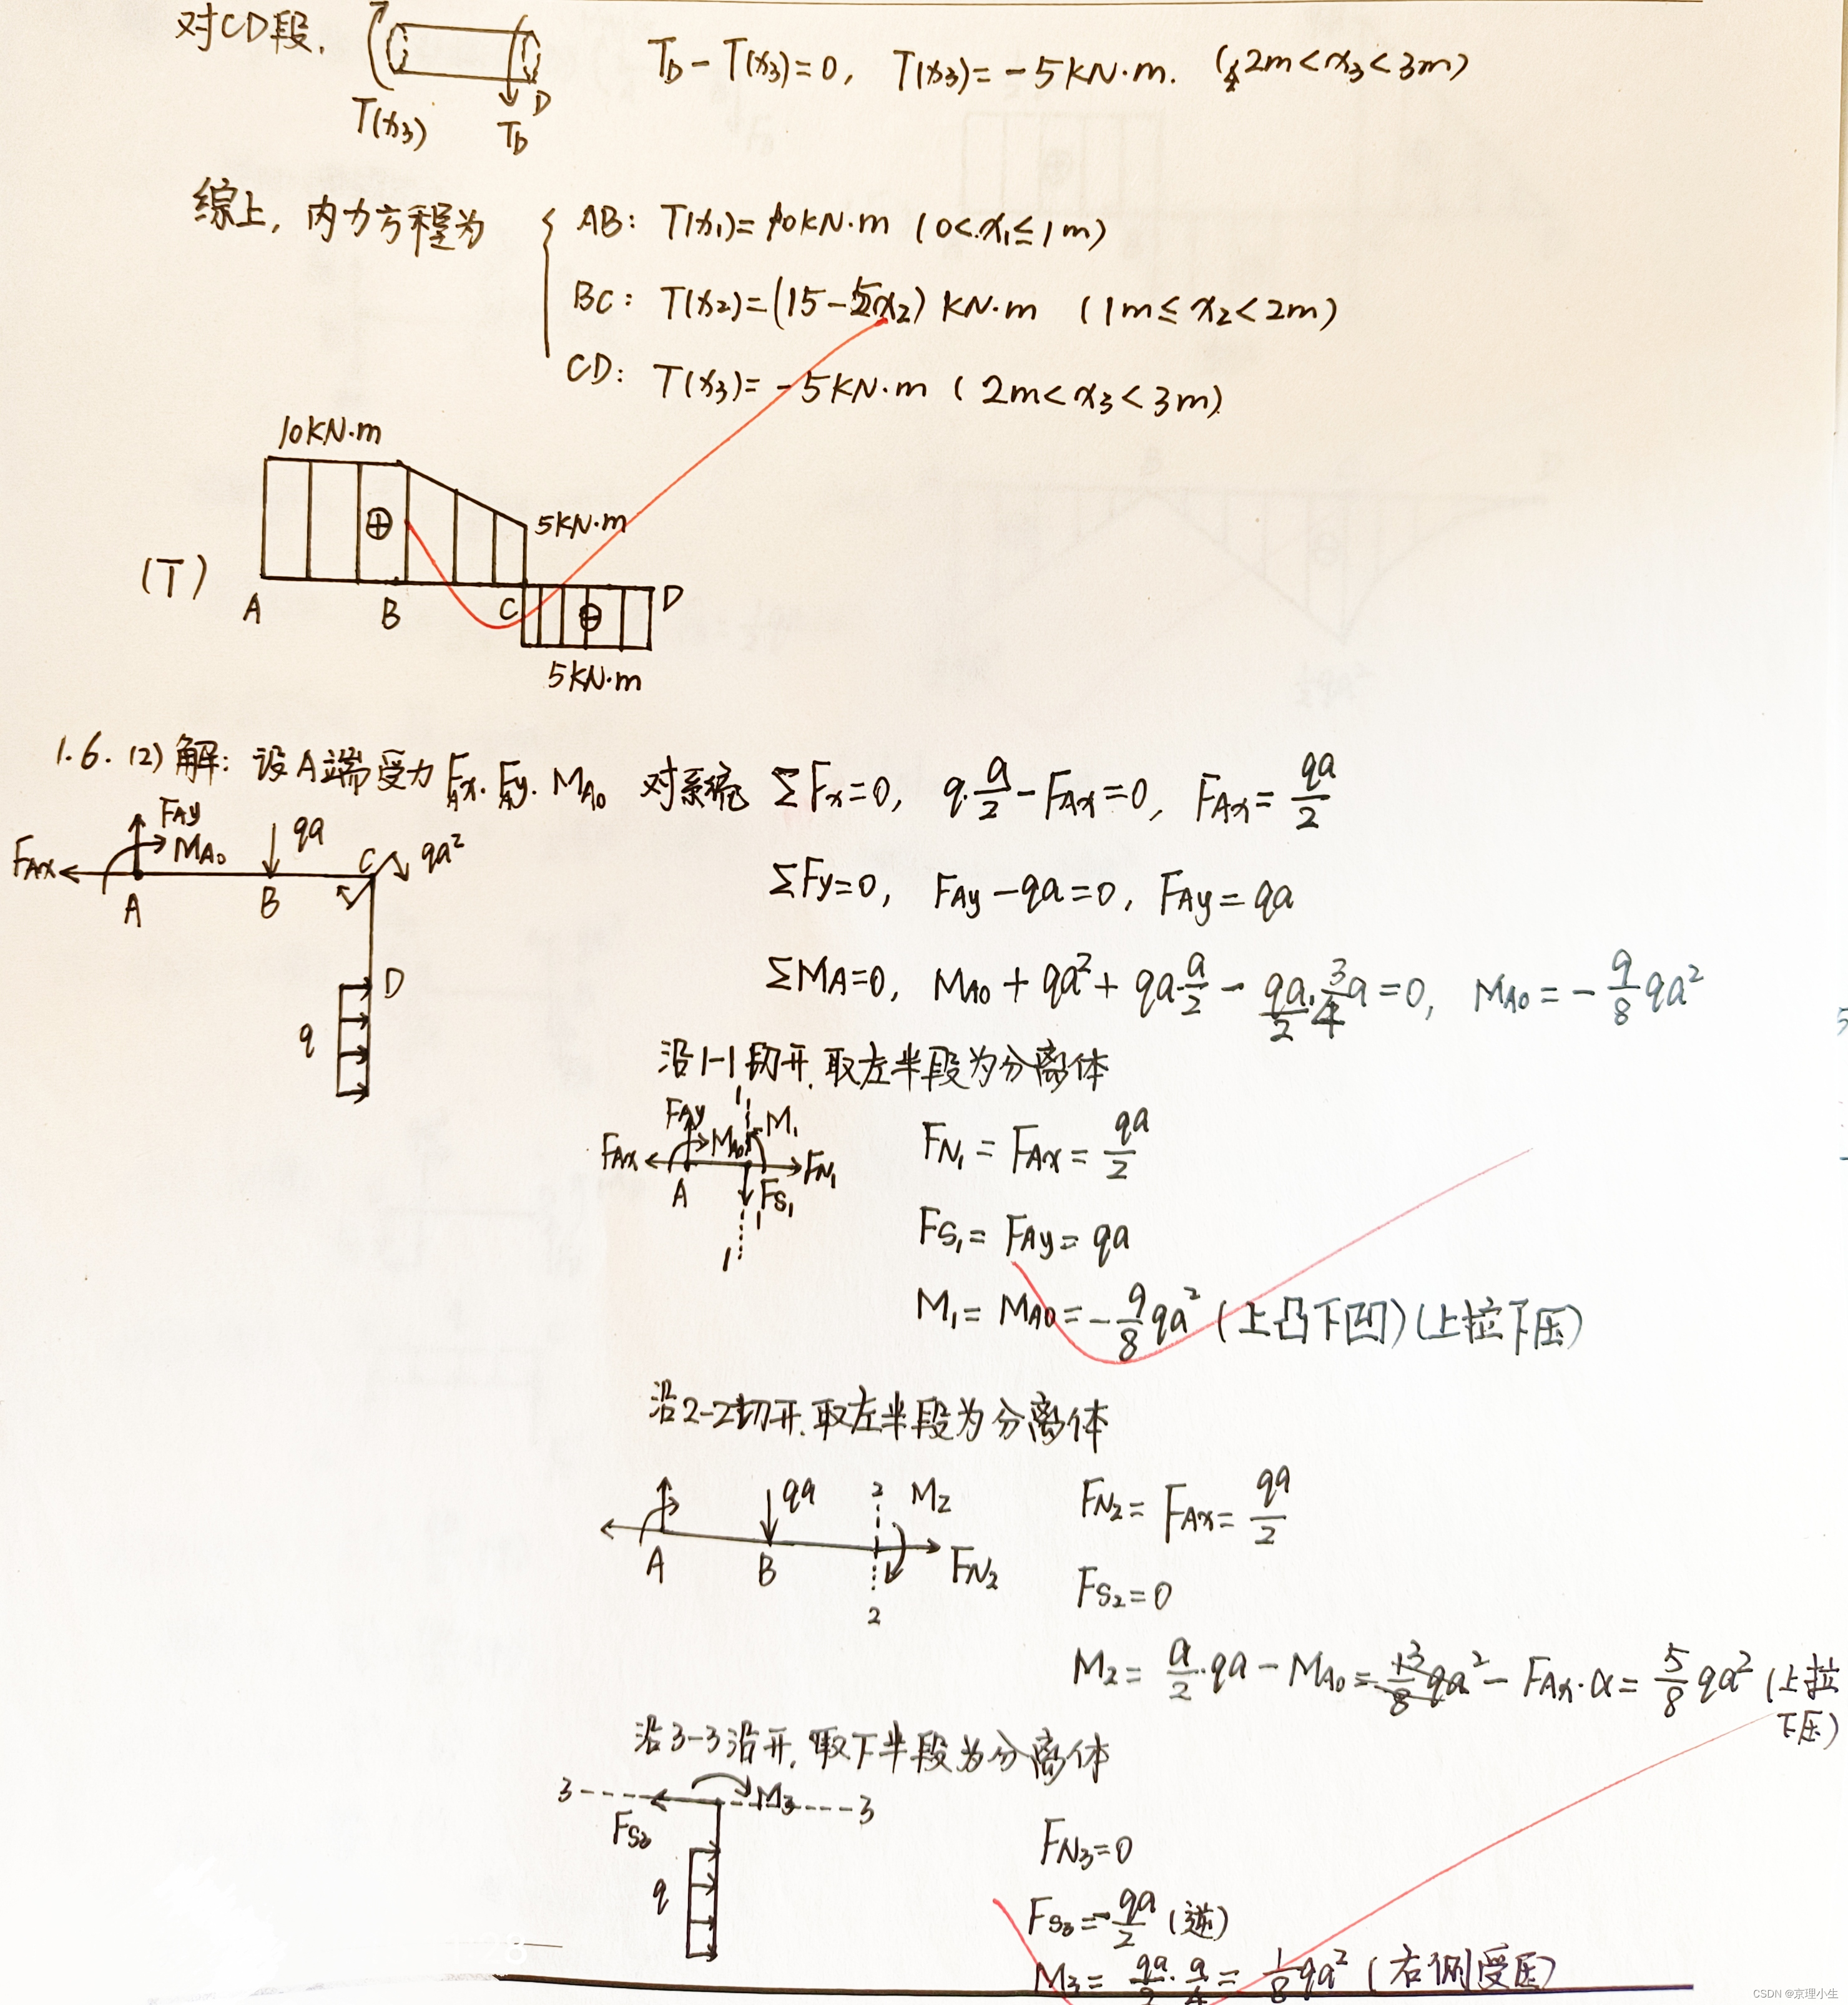 对CD段,
T(x₃) T_D D
T_D - T(x₃)=0, T(x₃)= -5kN·m. (2m<x₃<3m)
综上, 内力方程为
AB: T(x₁)= 10kN·m (0<x₁≤1m)
BC: T(x₂)=(15-5x₂) kN·m (1m≤x₂<2m)
CD: T(x₃)= -5kN·m (2m<x₃<3m)
10kN·m
⊕ 5kN·m
(T)
A B C ⊖ D
5kN·m
1.6.(2) 解: 设A端受力 F_Ax. F_Ay. M_A0 对系统 ΣFx=0, q·a/2-F_Ax=0, F_Ax=qa/2
F_Ay
F_Ax M_A0 qa C qa²
A B
ΣFy=0, F_Ay-qa=0, F_Ay=qa
D
q
ΣMA=0, M_A0+qa²+qa·a/2-qa/2·3/4a=0, M_A0=-9/8qa²
沿1-1切开,取左半段为分离体
F_Ay 1 M₁
F_Ax M_A0 F_N₁
A F_S₁
1
F_N₁=F_Ax=qa/2
F_S₁=F_Ay=qa
M₁=M_A0=-9/8qa² (上凸下凹)(上拉下压)
沿2-2切开,取左半段为分离体
qa 2 M₂
A B F_N₂
2
F_N₂=F_Ax=qa/2
F_S₂=0
M₂=a/2·qa-M_A0=13/8qa²-F_Ax·a=5/8qa² (上拉
下压)
沿3-3沿开,取下半段为分离体
3 M₃ 3
F_S₃
q
F_N₃=0
F_S₃=-qa/2 (逆)
M₃=qa/2·a/4=1/8qa² (右侧受压)
CSDN @京理小生